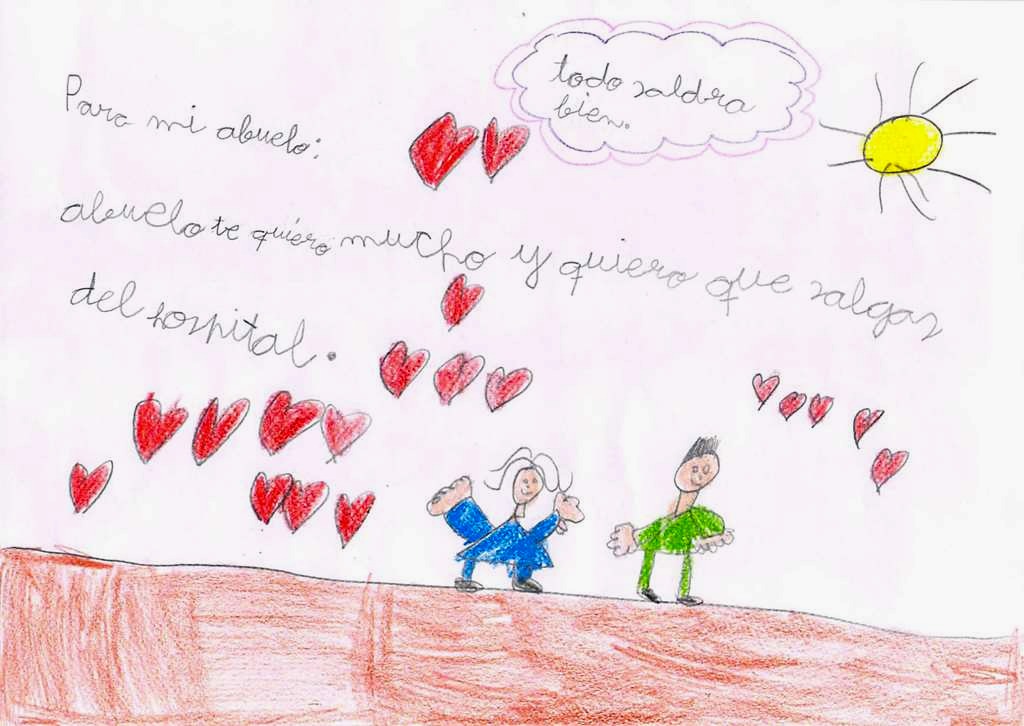 todo saldra
bien.
Para mi abuelo:
abuelo te quiero mucho y quiero que salgas
del hospital.